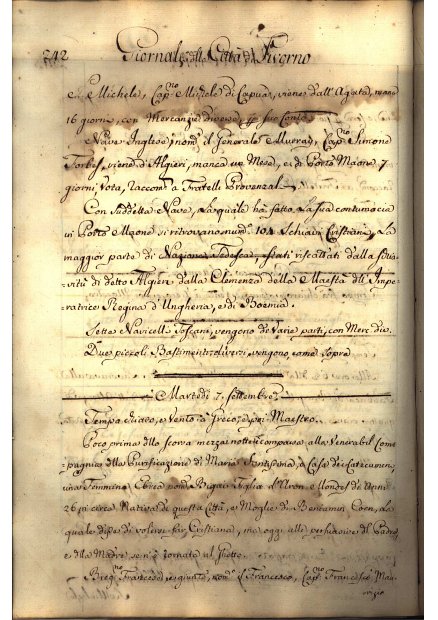 242 Giornale della Città di Livorno
S. Michele, Cap.no Michele di Capua, viene dall'Agata, manca
16 giorni, con Mercanzie diverse, p suo Conto
Nave Inglese, nom.a il Generale Murray, Cap.no Simone
Forbes, viene d'Algieri, manca un Mese, e di Porto Maone 7
giorni, Vota, Raccom.a a Fratelli Provenzal
Con sudd.etta Nave, La quale ha fatto La sua contumacia
in Porto Maone si ritrovano num.o 104 Schiavi Cristiani, La
maggior parte di Nazione Tedesca, stati riscattati dalla schia-
vitù di detto Algieri dalla Clemenza della Maestà dell'Impe-
ratrice Regina d'Ungheria, e di Boemia.
Sette Navicelli Toscani, vengono da varie parti, con Merc. div.e
Due piccoli Bastimenti diversi, vengono, come sopra
Martedì 7. Settembre
Tempo chiaro, e Vento a Greco, e poi Maestro.
Poco prima della scorsa mezza notte comparve alla Venerabil Com-
pagnia della Purificazione di Maria Santissima, e Casa dei Catecumeni,
una Femmina Ebrea nom.a Figlia d'Aron d'Anni
26 in circa Nativa di questa Città, e Moglie di Beniamin Coen, La
quale disse di volersi far Cristiana, ma oggi alle persuasive del Padre,
e della Madre se n'è tornata al Ghetto.
Breg.no Francese, giunto, nom.o il Francesco, Cap.no Francesco Mau-
rizio